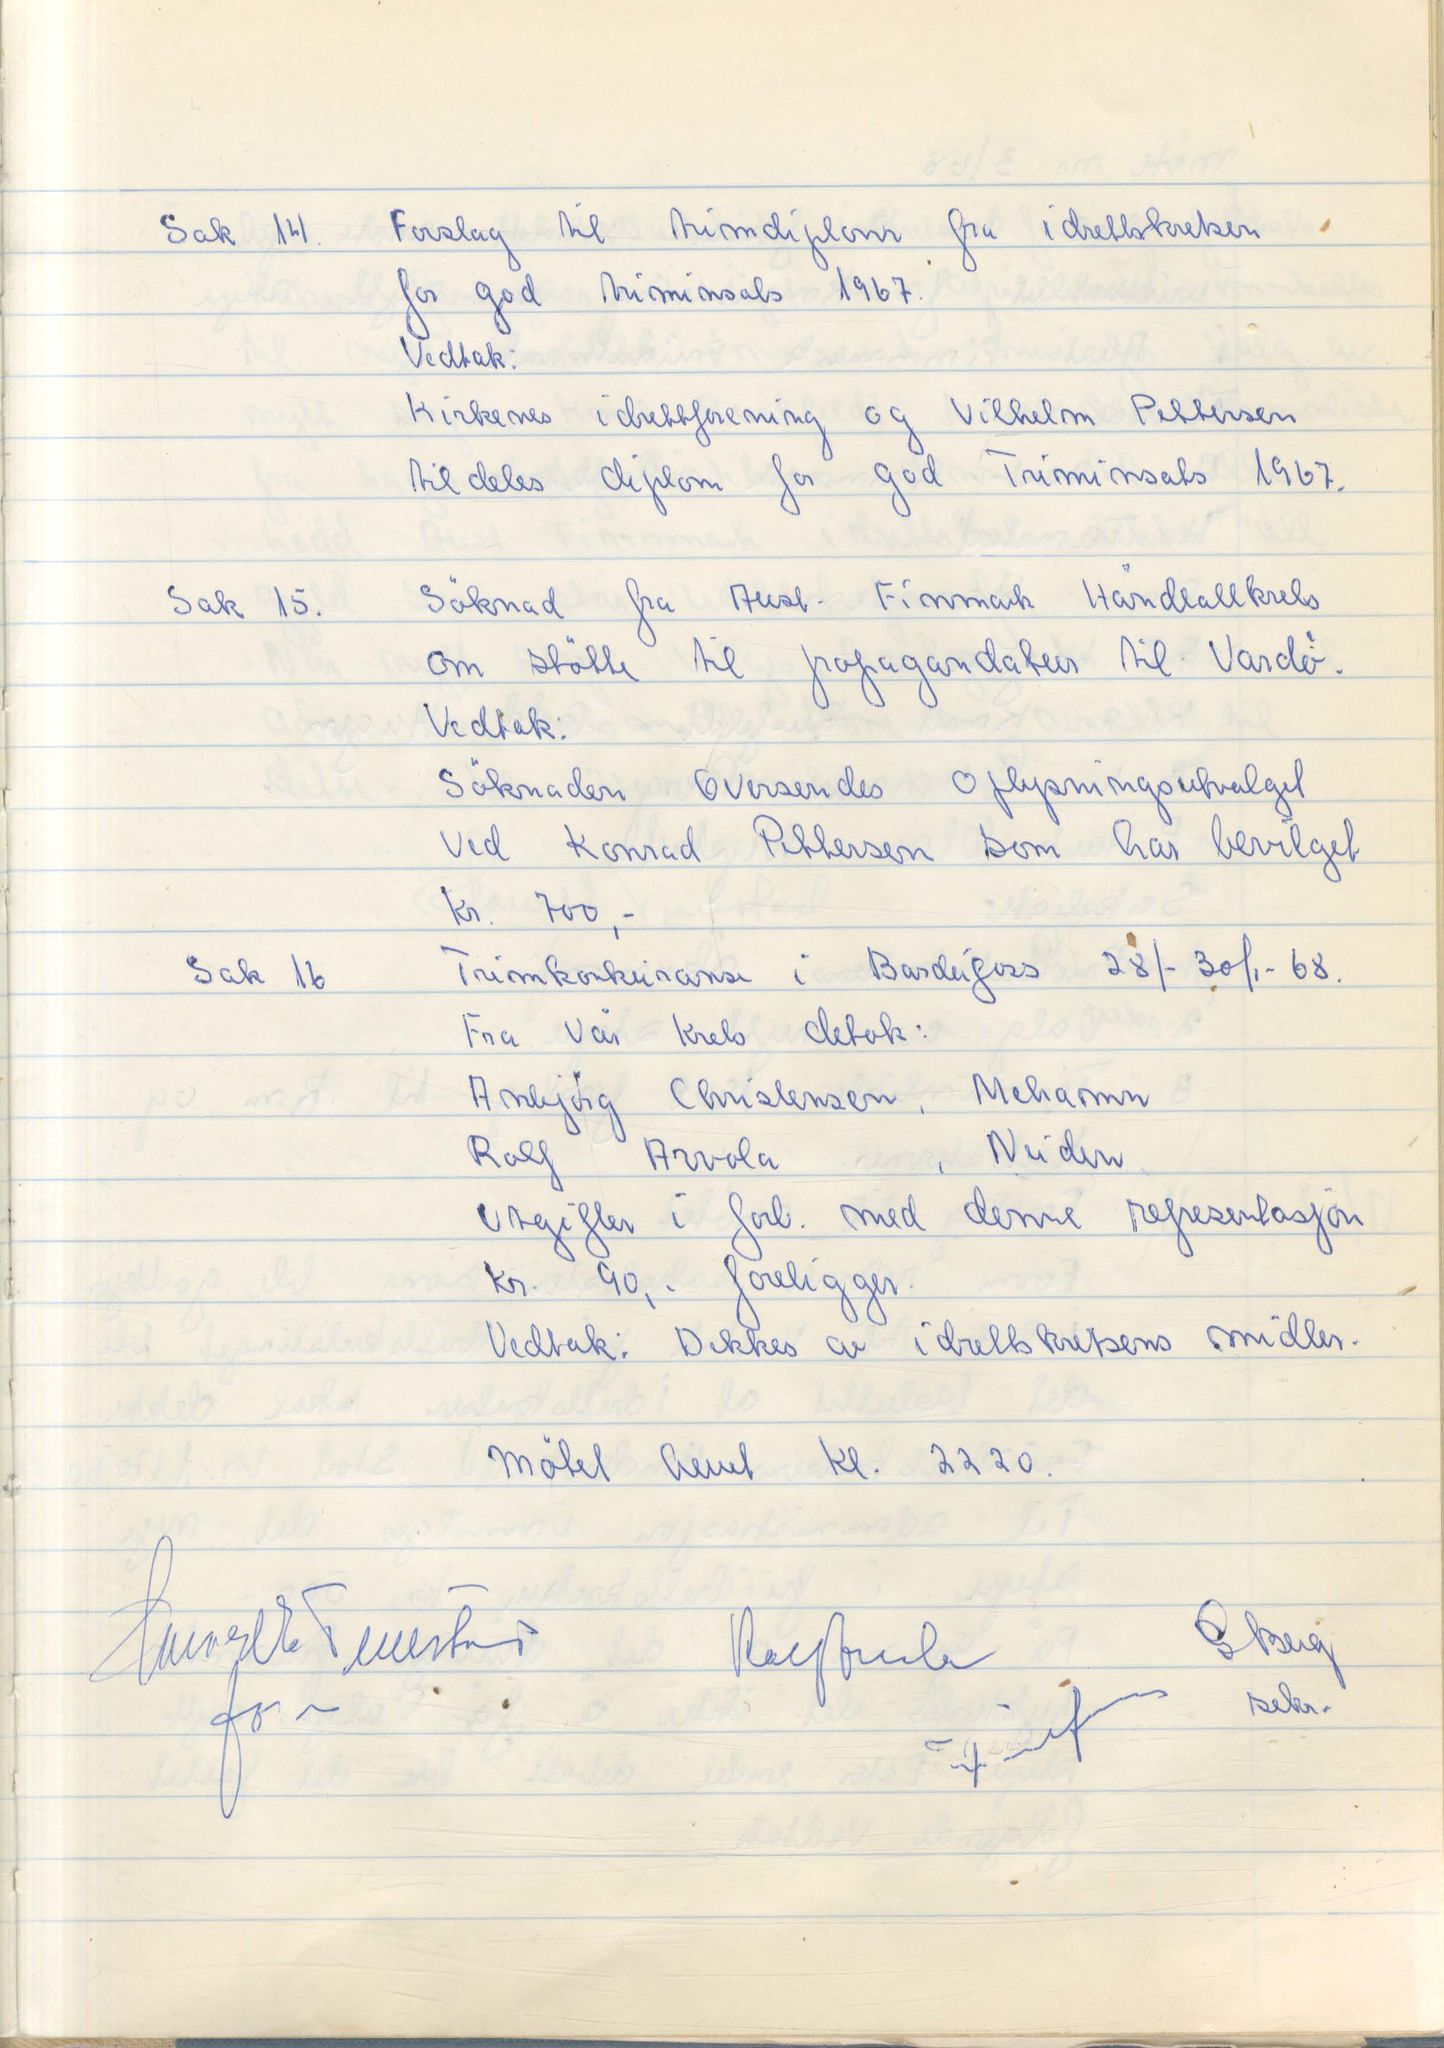 Sak 14. Forslag til trimdiplom fra idrettskretsen
for god triminsats 1967.
Vedtak:
Kirkenes idrettforening og Vilhelm Pettersen
tildeles diplom for god Triminsats 1967.
Sak 15. Söknad fra Aust-Finnmark Håndballkrets
om stötte til propagandatur til Vardö.
Vedtak:
Söknaden oversendes oplysningsutvalget
ved Konrad Pettersen som har bevilget
kr. 700,-
Sak 16 Trimkonkuranse i Bardufoss 28/- 30/1- 68.
Fra vår krets detok:
Anbjörg Christensen, Mehamn
Rolf Arvola, Neiden
Utgifter i forb. med denne representasjon
kr. 90,- foreligger.
Vedtak: Dekkes av idrettskretsens midler.
Mötet hevet kl. 2220.
Berg
sekr.